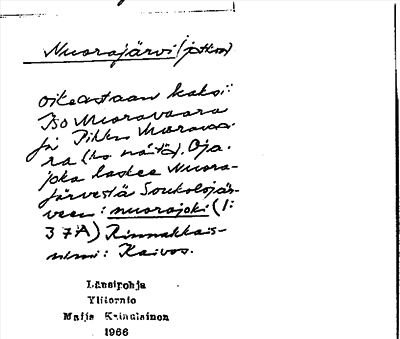 Nuorajärvi (jatkoa)
oikeastaan kaksi:
Iso Nuoravaara
ja Pikku Nuoravaa-
ra (ks. näitä). Oja,
joka laskee Nuora-
järvestä Soukolojär-
veen: nuorajoki (1:
37A) Rinnakkais-
nimi: Kaivos.
Länsipohja
Ylitornio
Maija Kainulainen
1966